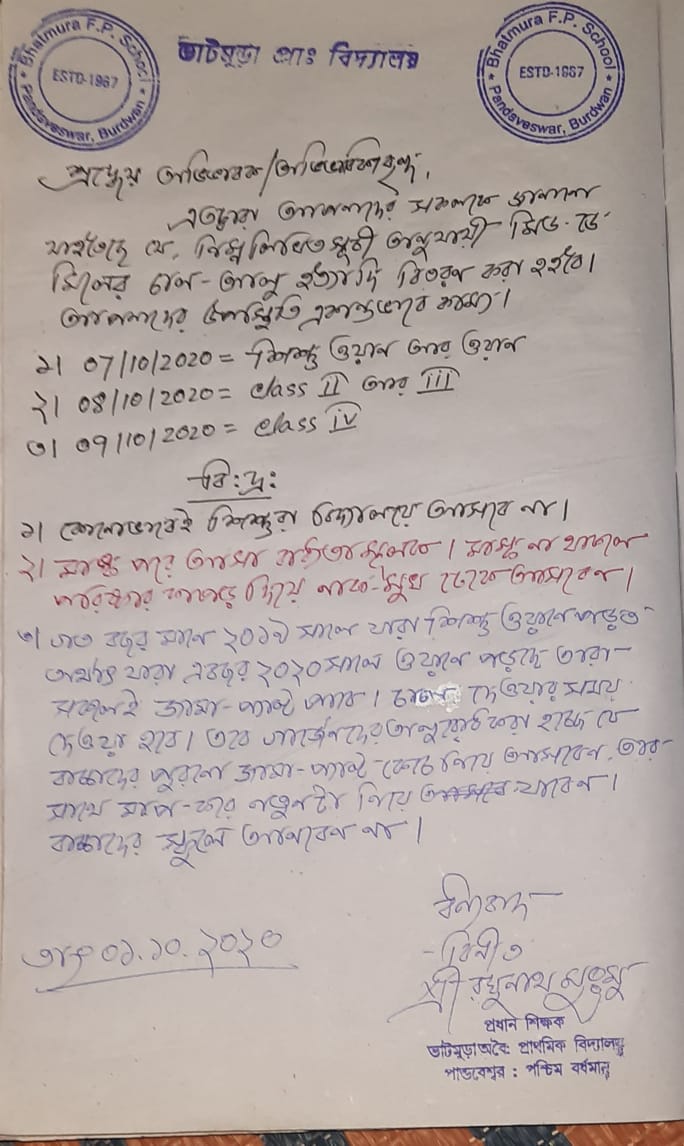 Bhatmura F.P. School
ESTD-1967
Pandaveswar, Burdwan
ভাটমুড়া প্রাঃ বিদ্যালয়
Bhatmura F.P. School
ESTD-1967
Pandaveswar, Burdwan
শ্রদ্ধেয় অভিভাবক/অভিভাবিকাবৃন্দ,
এতদ্বারা আপনাদের সকলকে জানানো
যাইতেছে যে, নিম্নলিখিত সূচী অনুযায়ী মিড-ডে
মিলের চাল-আলু ইত্যাদি বিতরণ করা হইবে।
আপনাদের উপস্থিতি একান্তভাবে কাম্য।
১। 07/10/2020 = শিশু ওয়ান আর ওয়ান
২। 08/10/2020 = class II আর III
৩। 09/10/2020 = class IV
বি:দ্র:
১। কোনোভাবেই শিশুরা বিদ্যালয়ে আসবে না।
২। মাস্ক পরে আসা বাধ্যতামূলক। মাস্ক না থাকলে
পরিষ্কার কাপড় দিয়ে নাক-মুখ ঢেকে আসবেন।
৩। গত বছর মানে ২০১৯ সালে যারা শিশু ওয়ানে পড়ত
অর্থাৎ যারা এবছর ২০২০ সালে ওয়ানে পড়ছে তারা
সকলেই জামা-প্যান্ট পাবে। চাল দেওয়ার সময়
দেওয়া হবে। তবে গার্জেনদের অনুরোধ করা হচ্ছে যে
বাচ্চাদের পুরনো জামা-প্যান্ট কেচে নিয়ে আসবেন, তার
সাথে মাপ-করে নতুনটা নিয়ে যাবেন।
বাচ্চাদের স্কুলে আনবেন না।
ধন্যবাদ
তাং ০১.১০.২০২০
-বিনীত
শ্রী রঘুনাথ মুর্মু
প্রধান শিক্ষক
ভাটমুড়া অবৈঃ প্রাথমিক বিদ্যালয়
পান্ডবেশ্বর : পশ্চিম বর্ধমান